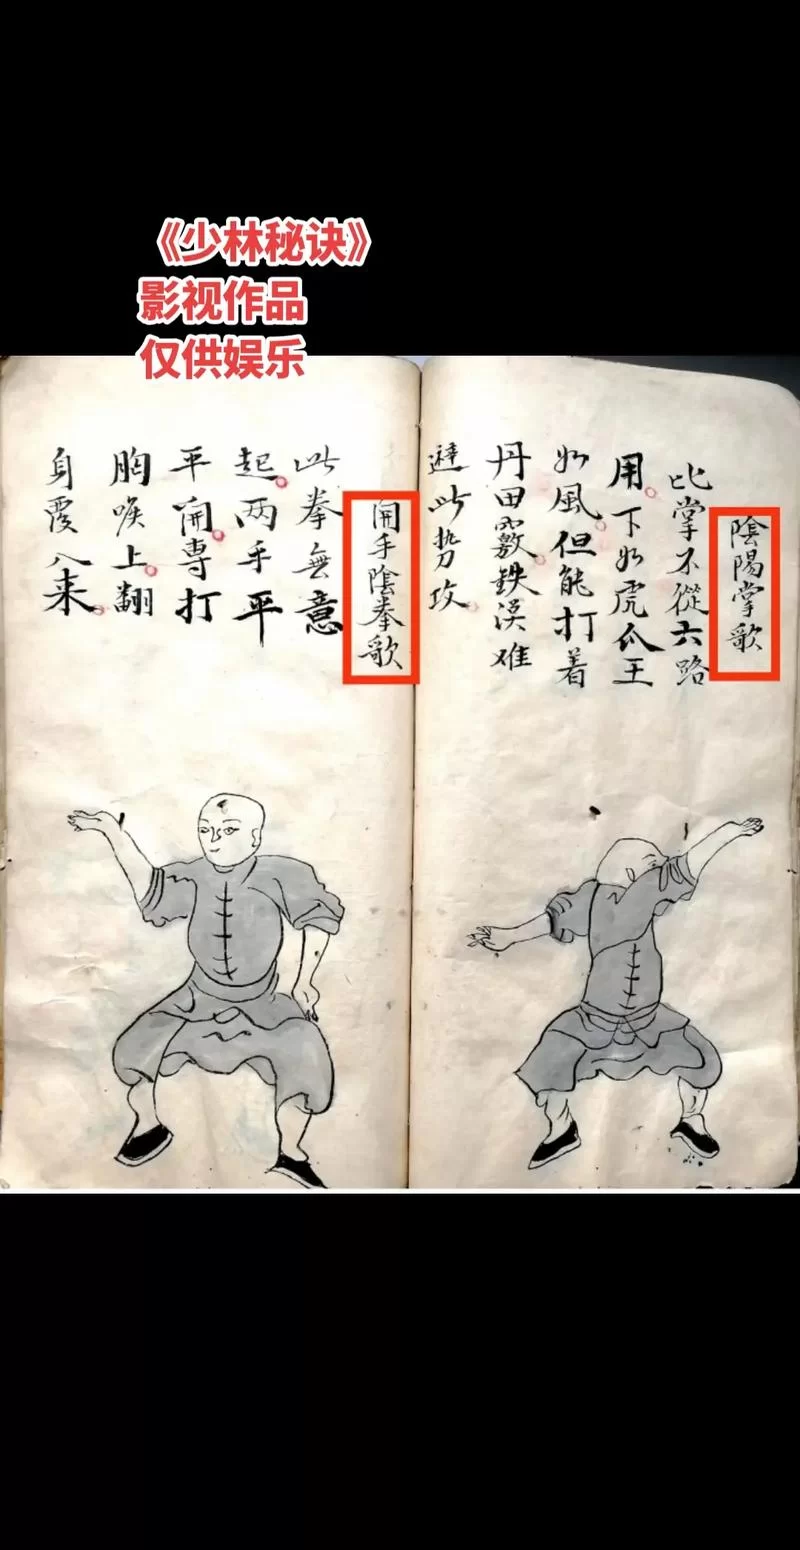 《少林秘诀》
影视作品
仅供娱乐
陰陽掌歌
比掌不從六路
用下如虎爪王
如風但能打着
丹田竅鉄漢难
避此势攻
開手陰拳歌
此拳無意
起两手平
平開專打
胸喉上翻
身覆入来